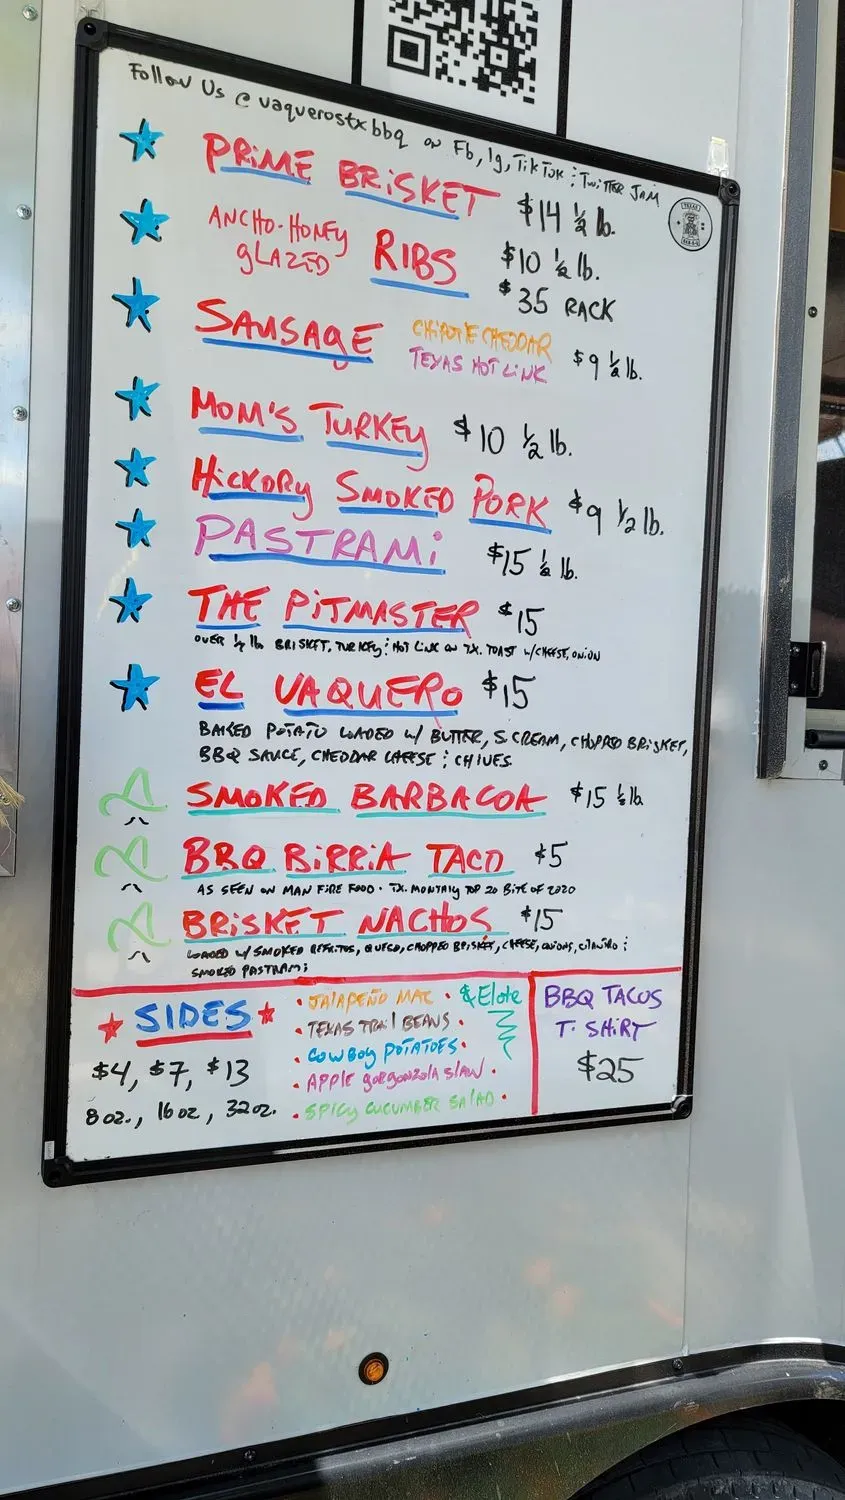 Follow Us @ vaquerostxbbq on Fb, Ig, TikTok : Twitter JAM
PRIME BRISKET $14 ½ lb.
ANCHO-HONEY GLAZED RIBS $10 ½ lb.
$35 RACK
SAUSAGE CHIPOTLE CHEDDAR
TEXAS HOT LINK $9 ½ lb.
MOM'S TURKEY $10 ½ lb.
HICKORY SMOKED PORK $9 ½ lb.
PASTRAMI $15 ½ lb.
THE PITMASTER $15
OVER ½ lb BRISKET, TURKEY : HOT LINK ON TX. TOAST W/CHEESE, ONION
EL VAQUERO $15
BAKED POTATO LOADED W/ BUTTER, S CREAM, CHOPPED BRISKET,
BBQ SAUCE, CHEDDAR CHEESE : CHIVES
SMOKED BARBACOA $15 ½ lb
BBQ BIRRIA TACO $5
AS SEEN ON MAN FIRE FOOD · TX. MONTHLY TOP 20 BITE OF 2020
BRISKET NACHOS $15
LOADED W/ SMOKED REFRITOS, QUESO, CHOPPED BRISKET, CHEESE, ONIONS, CILANTRO :
SMOKED PASTRAMI
SIDES
$4, $7, $13
8 oz., 16 oz, 32 oz.
· JALAPEÑO MAC · & Elote
· TEXAS TRAIL BEANS ·
· COWBOY POTATOES ·
· APPLE GORGONZOLA SLAW ·
· SPICY CUCUMBER SALAD ·
BBQ TACOS
T-SHIRT
$25